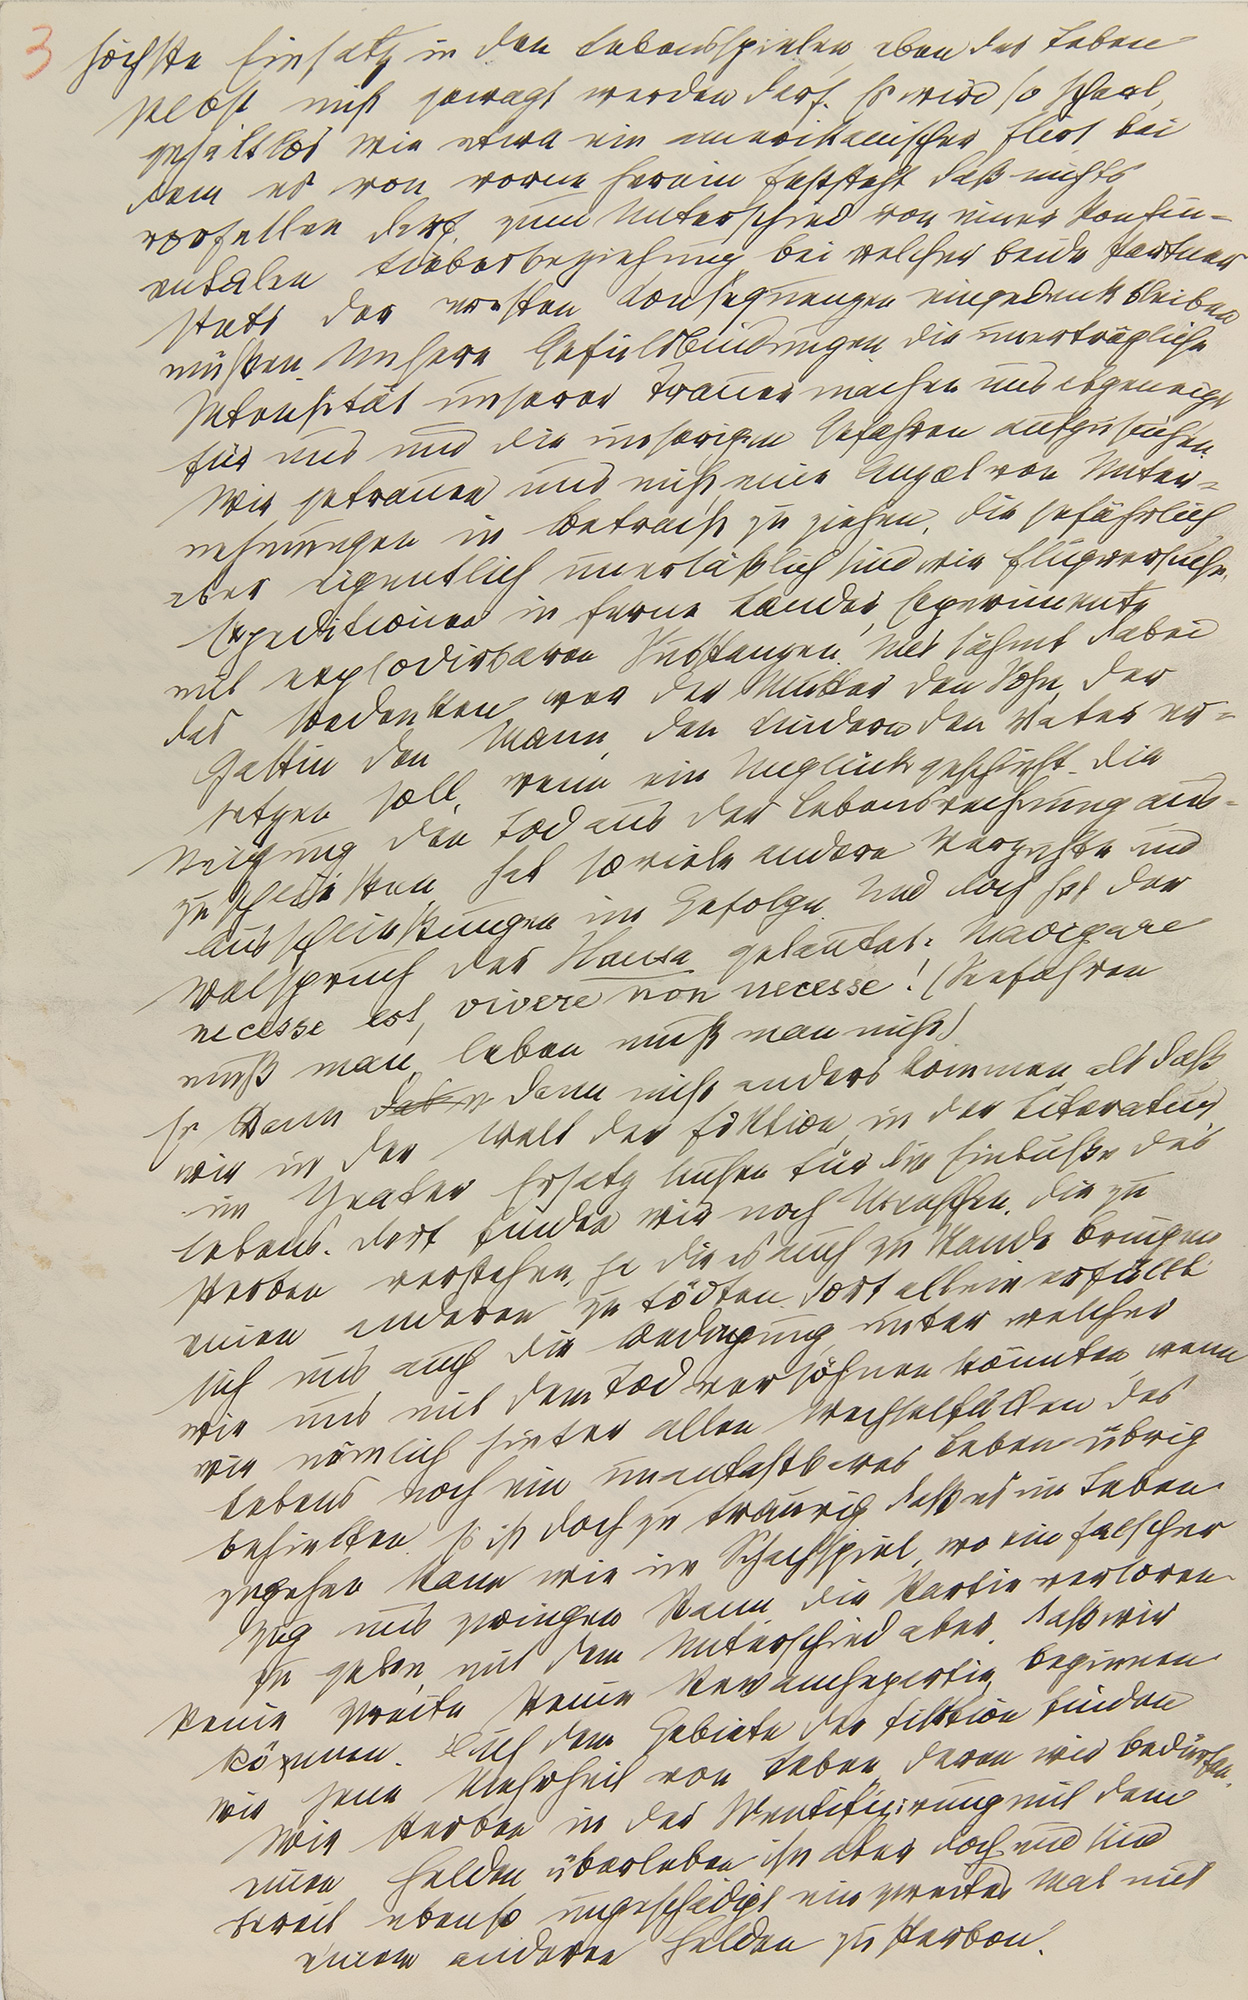 3
höchste Einsatz in den Lebensspielen, eben das Leben
selbst nicht gewagt werden darf. Es wird so schaal,
gehaltlos wie etwa ein amerikanischer Flirt bei
dem es von vorne herein feststeht daß nichts
vorfallen darf, zum Unterschied von einer Kontin-
entalen Liebesbeziehung bei welcher beide Partner
stets der ernsten Consequenzen eingedenk bleiben
müßen. Unsere Gefülsbindungen, die unerträgliche
Intensität unserer Trauer machen uns abgeneigt
für uns und die unserigen Gefahren aufzusuchen.
Wir getrauen uns nicht eine Anzal von Unter-
nehmungen in Betracht zu ziehen, die gefährlich
aber eigentlich unerläßlich sind wie Flugversuche,
Expeditionen in ferne Länder, Experimente
mit explodirbaren Substanzen. Uns lähmt dabei
das Bedenken, wer der Mutter den Sohn, der
Gattin den Mann, den Kindern den Vater er-
setzen soll, wenn ein Unglück geschieht. Die
Neigung den Tod aus der Lebensrechnung aus-
zuschließen hat so viele andere Verzichte und
Ausschließungen im Gefolge. Und doch hat der
Walspruch der Hansa gelautet: Navigare
necesse est, vivere non necesse! (Seefahren
muß man, leben muß man nicht)
Es kann dann nicht anders kommen als daß
wir in der Welt der Fiktion, in der Literatur,
im Theater Ersatz suchen für die Einbuße des
Lebens. Dort finden wir noch Menschen, die zu
sterben verstehen, ja die es auch zu Stande bringen
einen anderen zu tödten. Dort allein erfüllt
sich uns auch die Bedingung unter welcher
wir uns mit dem Tod versöhnen könnten, wenn
wir nämlich hinter allen Wechselfällen des
Lebens noch ein unantastbares Leben übrig
behielten. Es ist doch zu traurig daß es im Leben
zugehen kann wie im Schachspiel, wo ein falscher
Zug uns zwingen kann, die Partie verloren
zu geben, mit dem Unterschied aber, daß wir
keine zweite keine Revanchepartie beginnen
können. Auf dem Gebiete der Fiktion finden
wir jene Mehrheit von Leben, deren wir bedürfen.
Wir sterben in der Identifizirung mit dem
einen Helden überleben ihn aber doch und sind
bereit ebenso ungeschädigt ein zweites Mal mit
einem anderen Helden zu sterben.